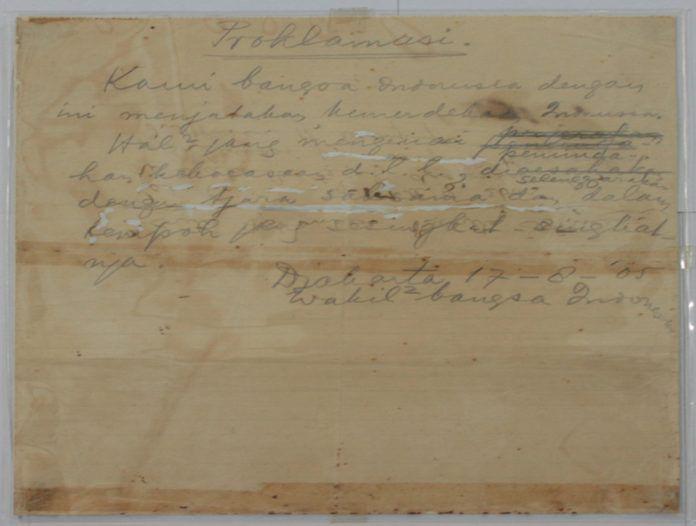 Proklamasi.
Kami bangsa Indonesia dengan
ini menjatakan kemerdekaan Indonesia.
Hal² jang mengenai
peminda-
han kekoeasaan d.l.l., diselenggarakan
dengan tjara saksama dan dalam
tempoh jang sesingkat-singkat-
nja.
Djakarta 17-8-'05
Wakil² bangsa Indonesia